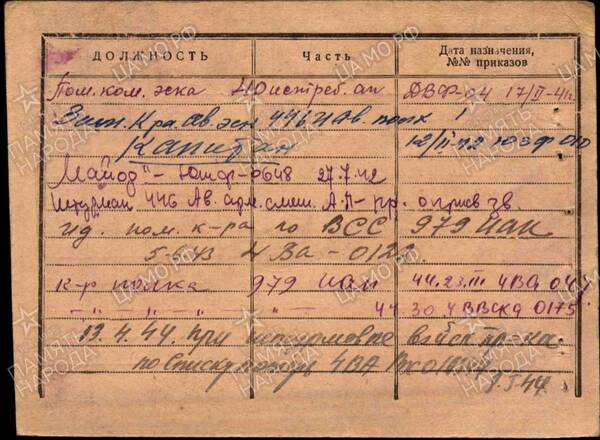 ДОЛЖНОСТЬ Часть Дата назначения, №№ приказов
Пом. ком. эска 40 истреб. ап ДВФ-04 17/II-41
Зам. к-ра. ав. эск 446 ИАв. полк
Капитан 12/II-42 ЮЗФ 010
"Майор" - Южф-0648 27.7.42
Штурман 446 Ав. адм. смеш. А.П - пр. о присв зв.
ид. пом. к-ра по ВСС 979 ИАП
5-5-43 4 ВА-0122
к-р полка 979 иап 44.23.III 4ВА 04
-"- -"- -"- 44.30.4 ВВСКА 0175
13.4.44. при штурмовке
по списку потерь 4ВА
8.5.44.
ПАМЯТЬ НАРОДА
ЦАМО.РФ